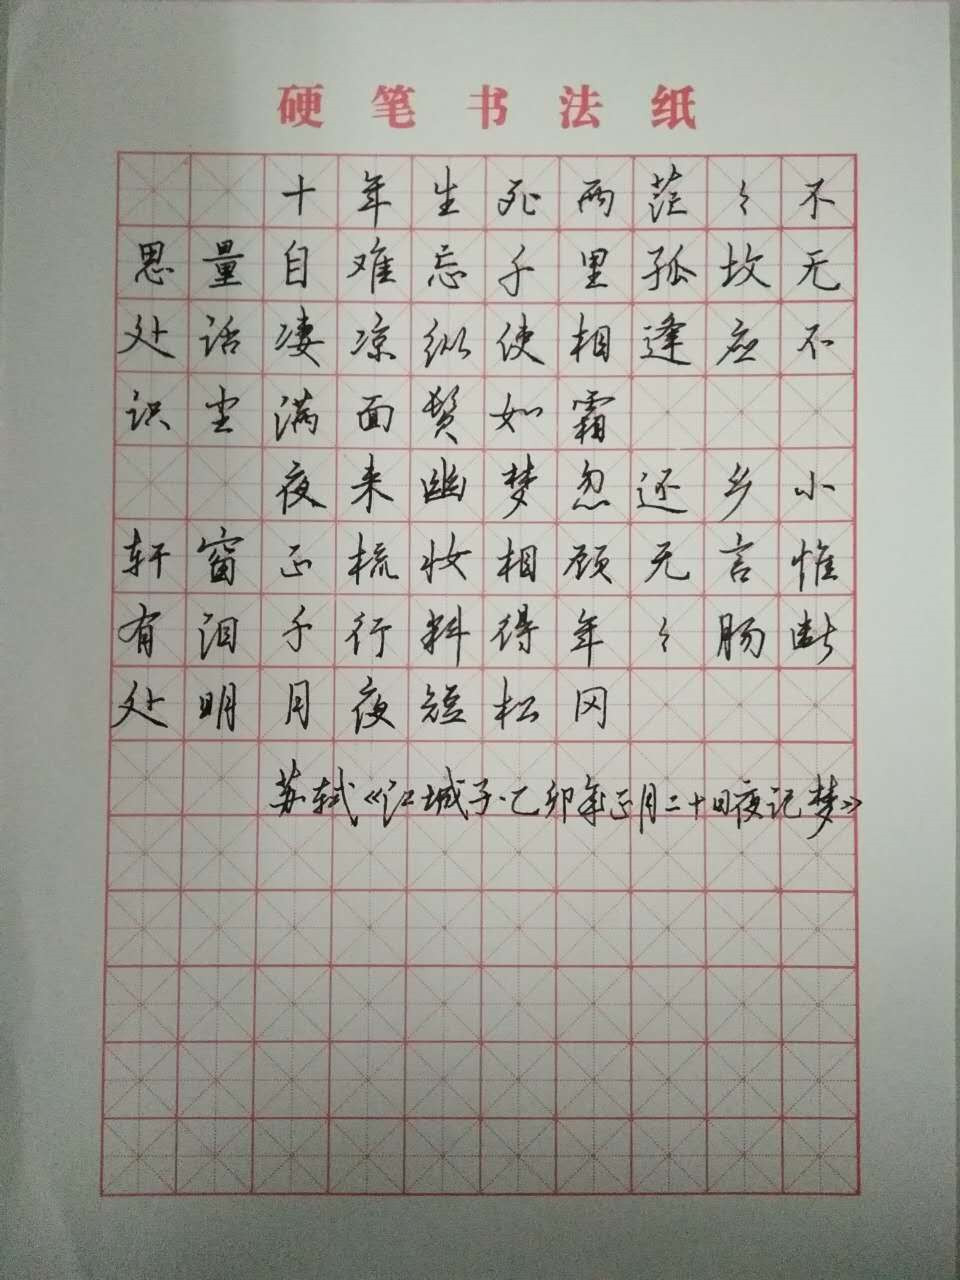 硬笔书法纸
十年生死两茫〻不
思量自难忘千里孤坟无
处话凄凉纵使相逢应不
识尘满面鬓如霜
夜来幽梦忽还乡小
轩窗正梳妆相顾无言惟
有泪千行料得年〻肠断
处明月夜短松冈
苏轼《江城子·乙卯年正月二十日夜记梦》